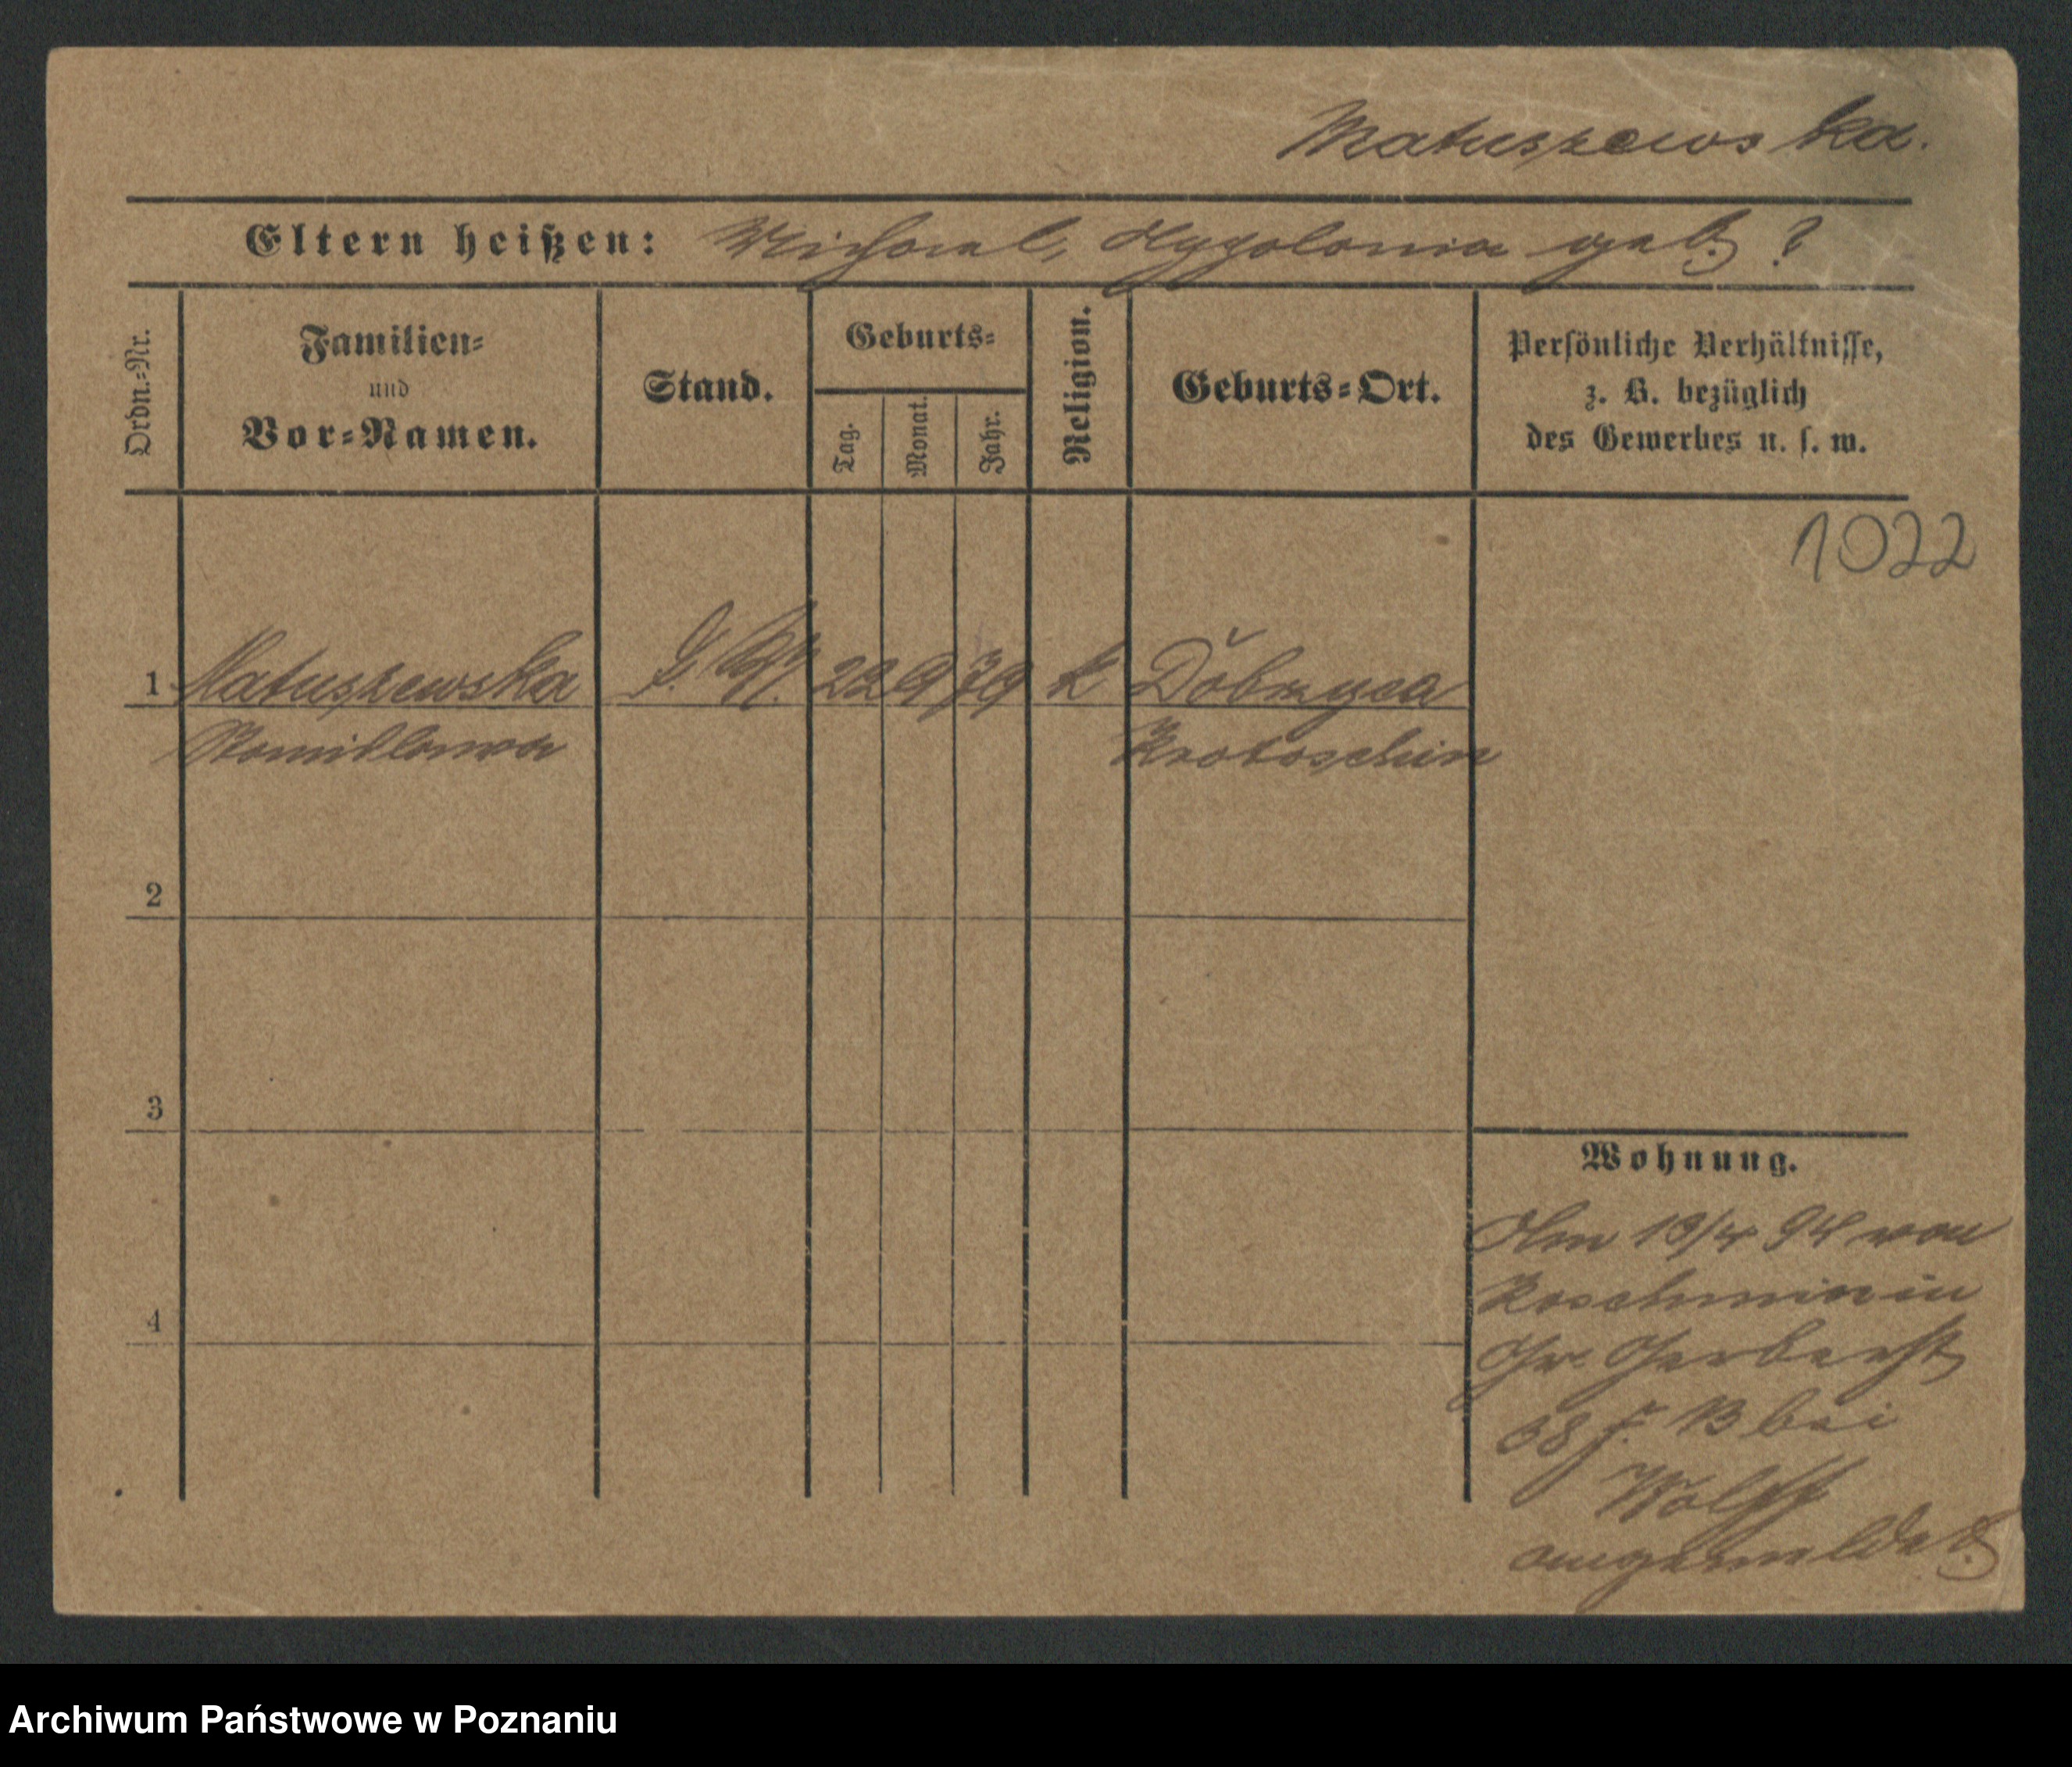 Matuszewska.
Eltern heißen: Michael, Appolonia geb. ?
Ordn.-Nr.
Familien-
und
Vor-Namen.
Stand.
Geburts-
Tag.
Monat.
Jahr.
Religion.
Geburts-Ort.
Persönliche Verhältnisse,
z. B. bezüglich
des Gewerbes u. s. w.
1022
1 Matuszewska 22 9 79 k Dobrzyca
Stanislawa Krotoschin
2
3
4
Wohnung.
Am 13/4 94 von
Koschmin in
Gr. Gerberst
38 bei
Wolff
angemeldet
Archiwum Państwowe w Poznaniu